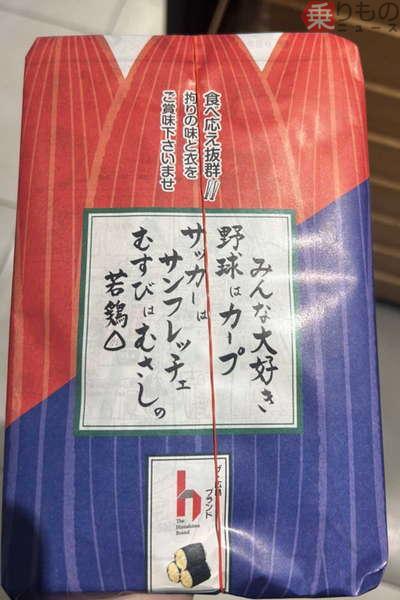 乗りもの
ニュース
食べ応え抜群!!
拘りの味と衣を
ご賞味下さいませ
みんな大好き
野球はカープ
サッカーは
サンフレッチェ
むすびはむさしの
若鶏
ザ・広島
ブランド
h
The
Hiroshima
Brand